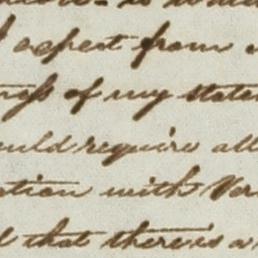 I expect from
ness of my state
ould require all
ation with Ver
d that there is a